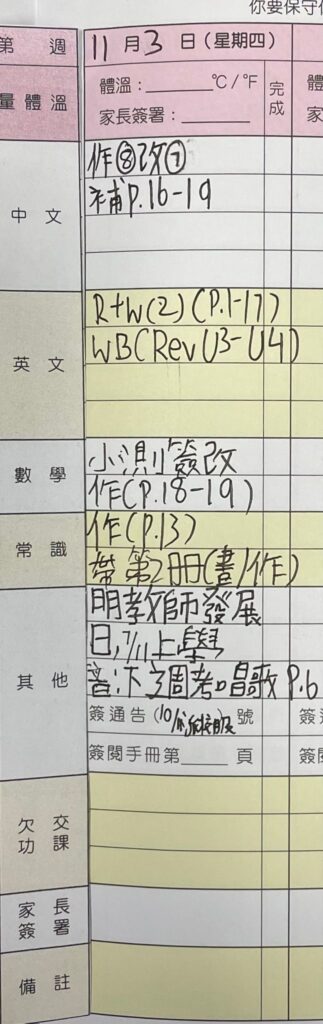 你要保守
第 週 11月3日(星期四)
量體溫 體溫:______°C/°F 完成 體
家長簽署:______ 家
中文 作⑧改⑦
補P.16-19
英文 R+W(2)(P.1-17)
WB(Rev U3-U4)
數學 小測簽改
作(P.18-19)
常識 作(P.13)
帶第2冊(書/作)
其他 明教師發展
日,7/11上學
音:下周考唱歌P.6
簽通告(10/ )號 簽
簽閱手冊第____頁 簽閱
欠交功課
家長簽署
備註